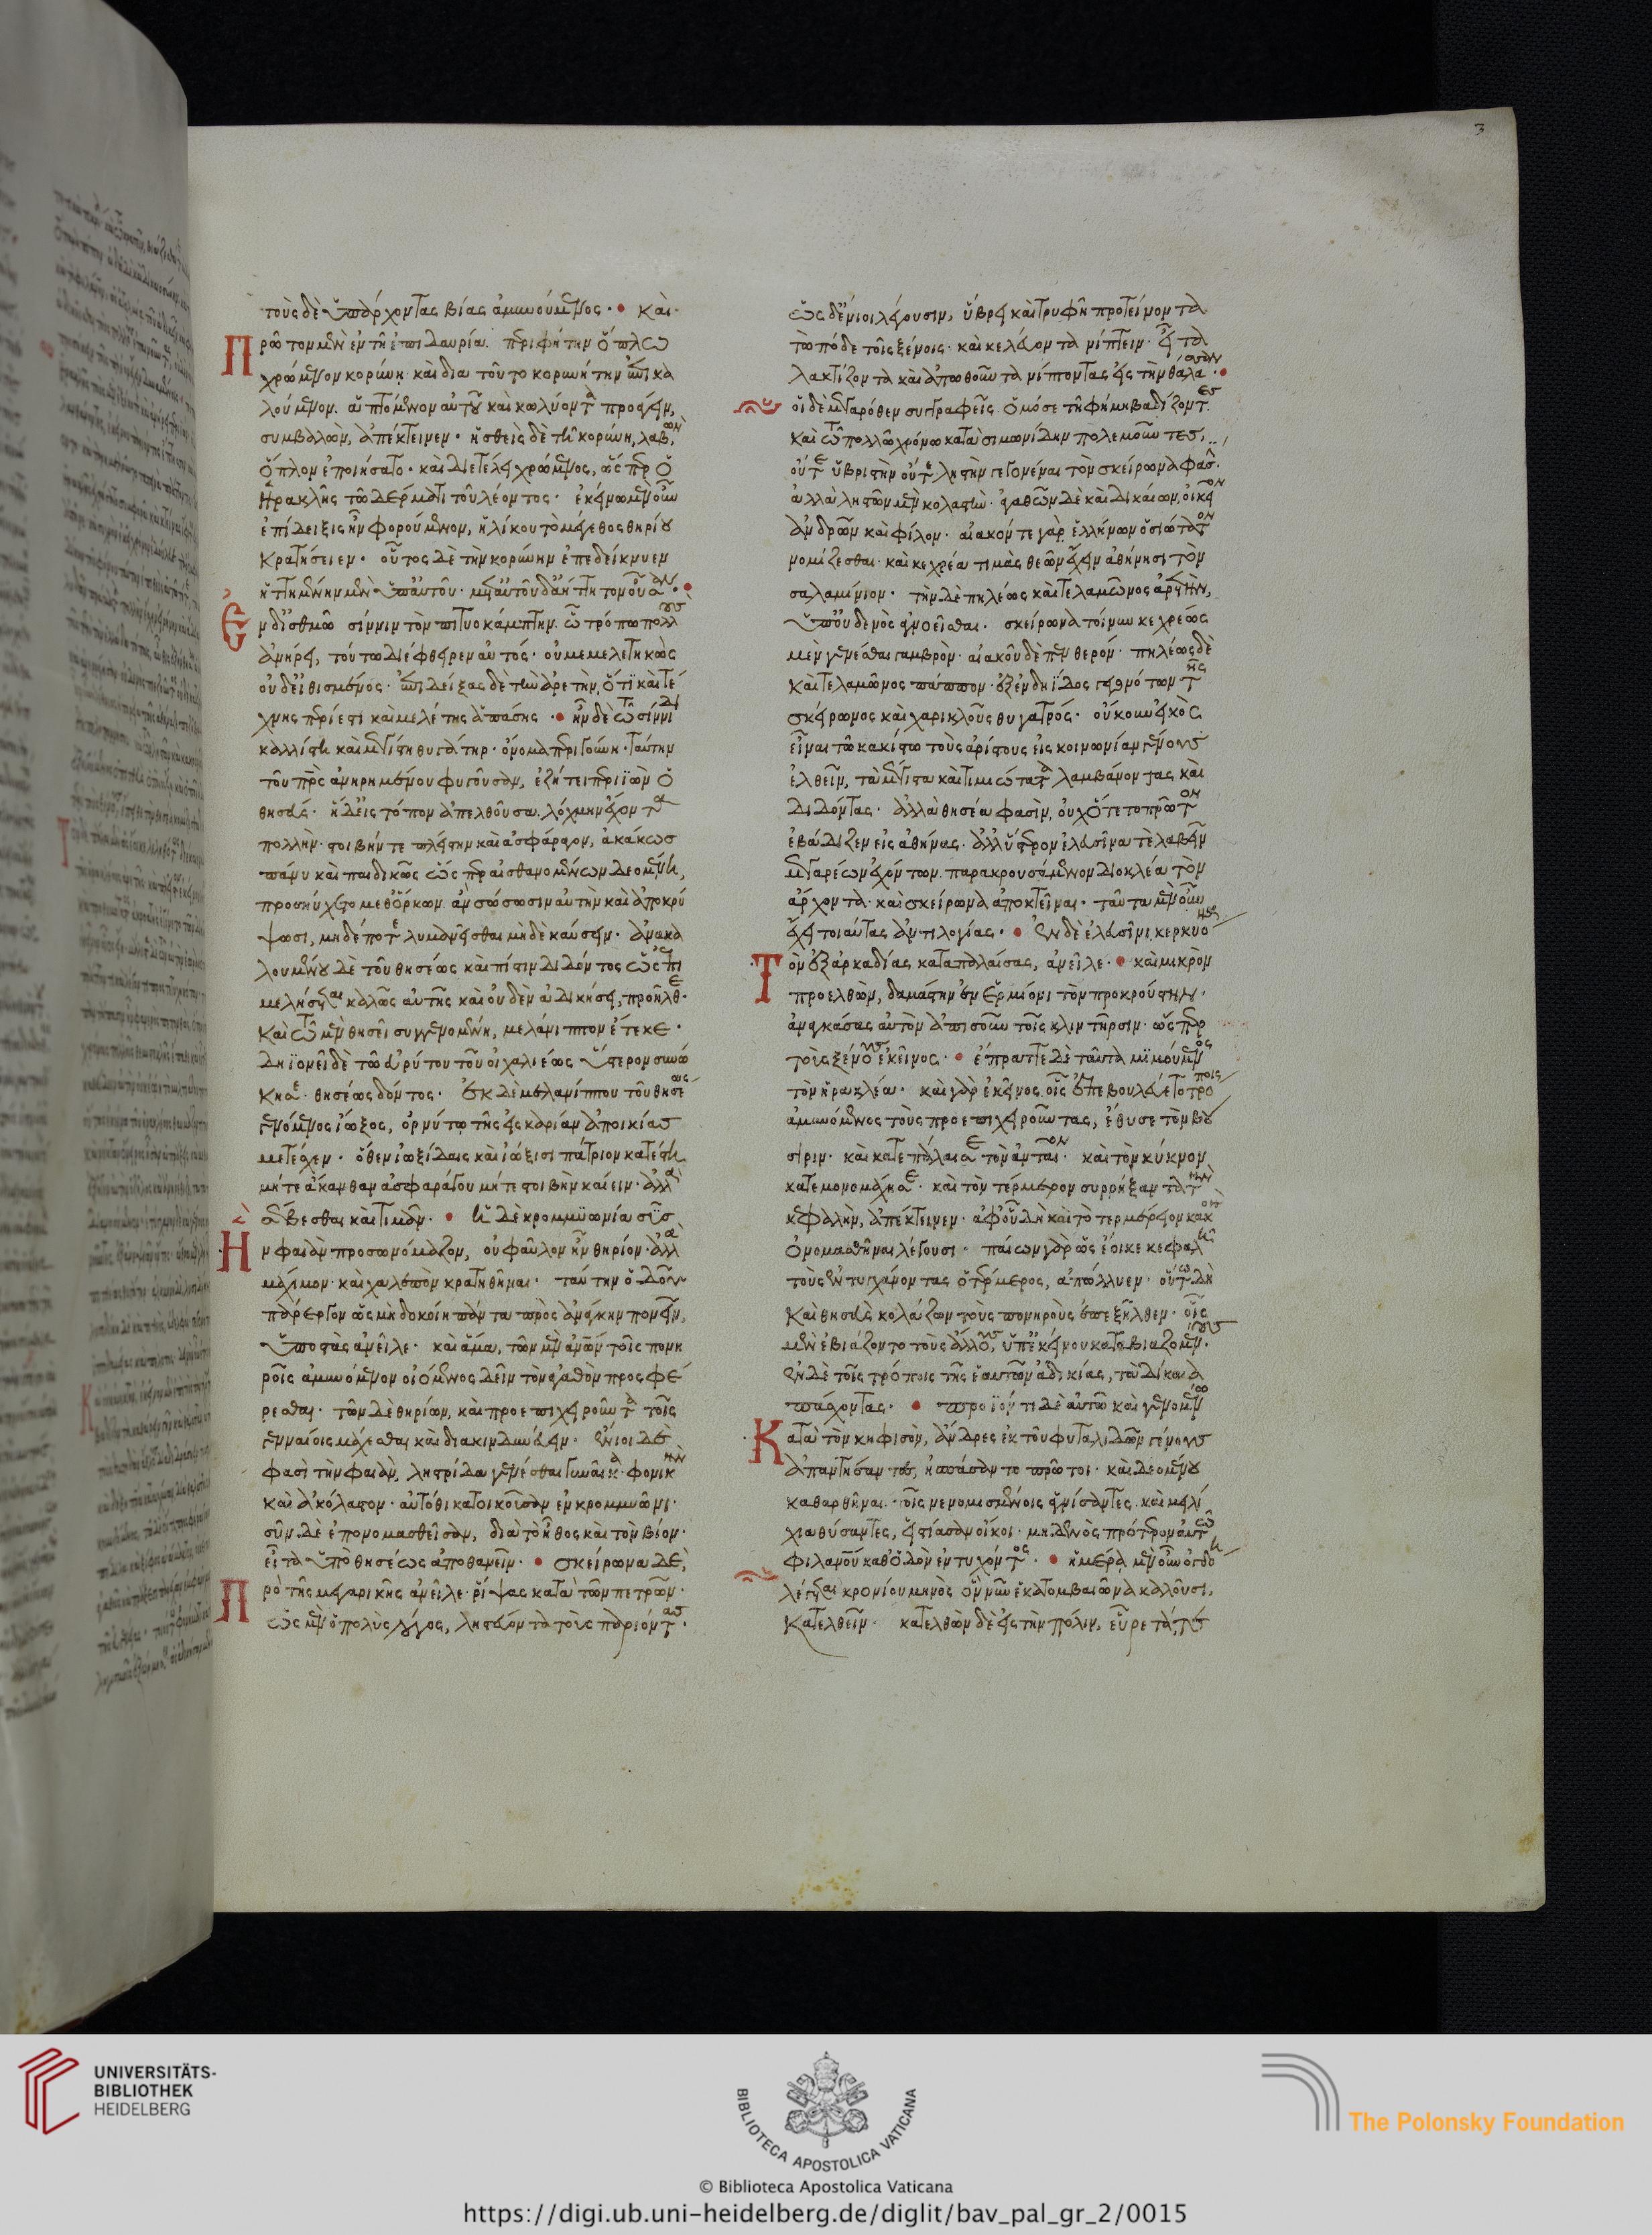 τοὺς δὲ ὑπάρχοντας βίας ἀμυνούμενος · καὶ
Πρῶτον μὲν ἐν τῇ ἐπιδαυρίᾳ περιφήτην ὅπλῳ
χρώμενον κορύνῃ· καὶ διὰ τοῦτο κορυνήτην ἐπικα
λούμενον. ἁπτόμενον αὐτοῦ καὶ κωλύοντα προάγειν,
συμβαλὼν, ἀπέκτεινεν· ἡσθεὶς δὲ τῇ κορύνῃ, λαβὼν,
ὅπλον ἐποιήσατο· καὶ διετέλει χρώμενος, ὥσπερ ὁ
Ἡρακλῆς τῷ δέρματι τοῦ λέοντος· ἐκείνῳ μὲν οὖν
ἐπίδειξις ἦν φορούμενον, ἡλίκου τὸ μέγεθος θηρίου
κρατήσειεν· οὗτος δὲ τὴν κορύνην ἐπεδείκνυεν
ἡττημένην μὲν ὑπ' αὐτοῦ· μετ' αὐτοῦ δ' ἀήττητον οὖσαν ·
Ἐν δ' ἰσθμῷ σίννιν τὸν πιτυοκάμπτην. ᾧ τρόπῳ πολλοὺς
ἀνῄρει, τούτῳ διέφθειρεν αὐτός· οὐ μεμελετηκὼς
οὐδ' εἰθισμένος· ἐπιδείξας δὲ τὴν ἀρετὴν, ὅτι καὶ τέ
χνης περίεστι καὶ μελέτης ἁπάσης · ἦν δὲ τῷ σίννιδι
καλλίστη καὶ μεγίστη θυγάτηρ· ὄνομα περιγούνη· ταύτην
τοῦ πατρὸς ἀνῃρημένου φυγοῦσαν, ἐζήτει περιϊὼν ὁ
θησεύς· ἡ δ' εἰς τόπον ἀπελθοῦσα λόχμην ἔχοντα
πολλὴν· στοιβήν τε πλείστην καὶ ἀσφάραγον, ἀκάκως
πάνυ καὶ παιδικῶς ὥσπερ αἰσθανομένων δεομένη,
προσηύχετο μεθ' ὅρκων ἂν σώσωσιν αὐτὴν καὶ ἀποκρύ
ψωσι, μηδέποτε λυμανεῖσθαι μὴ δὲ καύσειν· ἀνακα
λουμένου δὲ τοῦ θησέως καὶ πίστιν διδόντος ὡς ἐπι
μελήσεται καλῶς αὐτῆς καὶ οὐδὲν ἀδικήσει, προῆλθε·
καὶ τῷ μὲν θησεῖ συγγενομένη, μελάνιππον ἔτεκε·
δηϊονεῖ δὲ τῷ εὐρύτου τοῦ οἰχαλιέως ὕστερον συνῴ
κησε θησέως δόντος· ἐκ δὲ μελανίππου τοῦ θησέως
γενόμενος ἴωξος, ὀρνύτῳ τῆς εἰς καρίαν ἀποικίας
μετέσχεν· ὅθεν ἰωξίδαις καὶ ἰώξισι πάτριον κατέστη
μήτε ἄκανθαν ἀσφαράγου μήτε στοιβὴν καίειν· ἀλλὰ
σέβεσθαι καὶ τιμᾶν · ἡ δὲ κρομμϋωνία σῦς
Ἣν φαιὰν προσωνόμαζον, οὐ φαῦλον ἦν θηρίον· ἀλλὰ
μάχιμον· καὶ χαλεπὸν κρατηθῆναι· ταύτην ὁδοῦ
πάρεργον ὡς μὴ δοκοίη πάντα πρὸς ἀνάγκην πονεῖν,
ὑποστὰς ἀνεῖλε· καὶ ἅμα, τῶν μὲν ἀνθρώπων τοῖς πονη
ροῖς ἀμυνόμενον οἰόμενος δεῖν τὸν ἀγαθὸν προσφέ
ρεσθαι· τῶν δὲ θηρίων, καὶ προεπιχειροῦντα τοῖς
γενναίοις μάχεσθαι καὶ διακινδυνεύειν· ἔνιοι δέ
φασὶ τὴν φαιὰν, λῃστρίδα γενέσθαι γυναῖκα φονικὴν
καὶ ἀκόλαστον· αὐτόθι κατοικοῦσαν ἐν κρομμυῶνι·
σῦν δὲ ἐπονομασθεῖσαν, διὰ τὸ ἦθος καὶ τὸν βίον·
εἶτα ὑπὸ θησέως ἀποθανεῖν · σκείρωνα δὲ,
Πρὸ τῆς μεγαρικῆς ἀνεῖλε· ῥίψας κατὰ τῶν πετρῶν·
ὡς μὲν ὁ πολὺς λόγος, λῃστεύοντα τοὺς παριόντας·
ὡς δ' ἔνιοι λέγουσιν, ὕβρει καὶ τρυφῇ προτείνοντα
τὼ πόδε τοῖς ξένοις· καὶ κελεύοντα νίπτειν· εἶτα
λακτίζοντα καὶ ἀπωθοῦντα νίπτοντας εἰς τὴν θάλασσαν ·
οἱ δὲ μεγαρόθεν συγγραφεῖς ὁμόσε τῇ φήμῃ βαδίζοντες
καὶ τῷ πολλῷ χρόνῳ κατὰ σιμωνίδην πολεμοῦντες,
οὔτε ὑβριστὴν οὔτε λῃστὴν γεγονέναι τὸν σκείρωνα φασί·
ἀλλὰ λῃστῶν μὲν κολαστὴν· ἀγαθῶν δὲ καὶ δικαίων, οἰκεῖον
ἀνδρῶν καὶ φίλον· αἰακόν τε γὰρ ἑλλήνων ὁσιώτατον
νομίζεσθαι· καὶ κυχρέα τιμὰς θεῶν ἔχειν ἀθήνησι τὸν
σαλαμίνιον· τὴν δὲ πηλέως καὶ τελαμῶνος ἀρετὴν,
ὑπ' οὐδενὸς ἀγνοεῖσθαι· σκείρωνα τοίνυν κυχρέως
μὲν γενέσθαι γαμβρὸν· αἰακοῦ δὲ πενθερόν· πηλέως δὲ
καὶ τελαμῶνος πάππον· ἐξ ἐνδηΐδος γεγονότων τῆς
σκείρωνος καὶ χαρικλοῦς θυγατρός· οὔκουν εἰκὸς
εἶναι τῷ κακίστῳ τοὺς ἀρίστους εἰς κοινωνίαν γένους
ἐλθεῖν, τὰ μέγιστα καὶ τιμιώτατα λαμβάνοντας καὶ
διδόντας· ἀλλὰ θησέα φασὶν, οὐχ ὅτε τοπρῶτον
ἐβάδιζεν εἰς ἀθήνας· ἀλλ' ὕστερον ἐλευσῖνά τε λαβεῖν
μεγαρέων ἐχόντων παρακρουσάμενον διοκλέα τὸν
ἄρχοντα· καὶ σκείρωνα ἀποκτεῖναι· ταῦτα μὲν οὖν
ἔχει τοιαύτας ἀντιλογίας · ἐν δὲ ἐλευσῖνι, κερκυο
Τὸν ἐξ ἀρκαδίας καταπαλαίσας, ἀνεῖλε · καὶ μικρὸν
προελθὼν, δαμάστην ἐν ἑρμιόνι τὸν προκρούστην·
ἀναγκάσας αὐτὸν ἀπισοῦν τοῖς κλιντῆρσιν· ὥσπερ
τοὺς ξένους ἐκεῖνος · ἔπραττε δὲ ταῦτα μιμούμενος
τὸν ἡρακλέα· καὶ γὰρ ἐκεῖνος οἷς ἐπεβουλεύετο τρόποις
ἀμυνόμενος τοὺς προεπιχειροῦντας, ἔθυσε τὸν βού
σιριν· καὶ κατεπάλαισε τὸν ἀνταῖον· καὶ τὸν κύκνον
κατεμονομάχησε· καὶ τὸν τέρμερον συρρήξας τὴν
κεφαλὴν, ἀπέκτεινεν· ἀφ' οὗ δὴ καὶ τὸ τερμέρειον κακὸν
ὀνομασθῆναι λέγουσι· παίων γὰρ ὡς ἔοικε κεφαλῇ
τοὺς ἐντυγχάνοντας ὁ τέρμερος, ἀπώλλυεν· οὕτω δὴ
καὶ θησεὺς κολάζων τοὺς πονηροὺς ἐπεξῆλθεν· οἷς
μὲν ἐβιάζοντο τοὺς ἄλλους, ὑπ' ἐκείνου καταβιαζομένους·
ἐν δὲ τοῖς τρόποις τῆς ἑαυτῶν ἀδικίας, τὰ δίκαια
πάσχοντας · προϊόντι δὲ αὐτῷ καὶ γενομένῳ
Κατὰ τὸν κηφισὸν, ἄνδρες ἐκ τοῦ φυταλιδῶν γένους
ἀπαντήσαντες, ἠσπάσαντο πρῶτοι· καὶ δεομένου
καθαρθῆναι· τοῖς νενομισμένοις ἁγνίσαντες καὶ μειλί
χια θύσαντες, εἱστίασαν οἴκοι· μηδενὸς πρότερον αὐτῷ
φιλανθρώπου καθ' ὁδὸν ἐντυχόντος · ἡμέρᾳ μὲν οὖν ὀγδόῃ
λέγεται κρονίου μηνὸς ὃν νῦν ἑκατομβαιῶνα καλοῦσι,
κατελθεῖν· κατελθὼν δὲ εἰς τὴν πόλιν, εὗρε τά τε
3
UNIVERSITÄTS-
BIBLIOTHEK
HEIDELBERG
BIBLIOTECA APOSTOLICA VATICANA
The Polonsky Foundation
© Biblioteca Apostolica Vaticana
https://digi.ub.uni-heidelberg.de/diglit/bav_pal_gr_2/0015